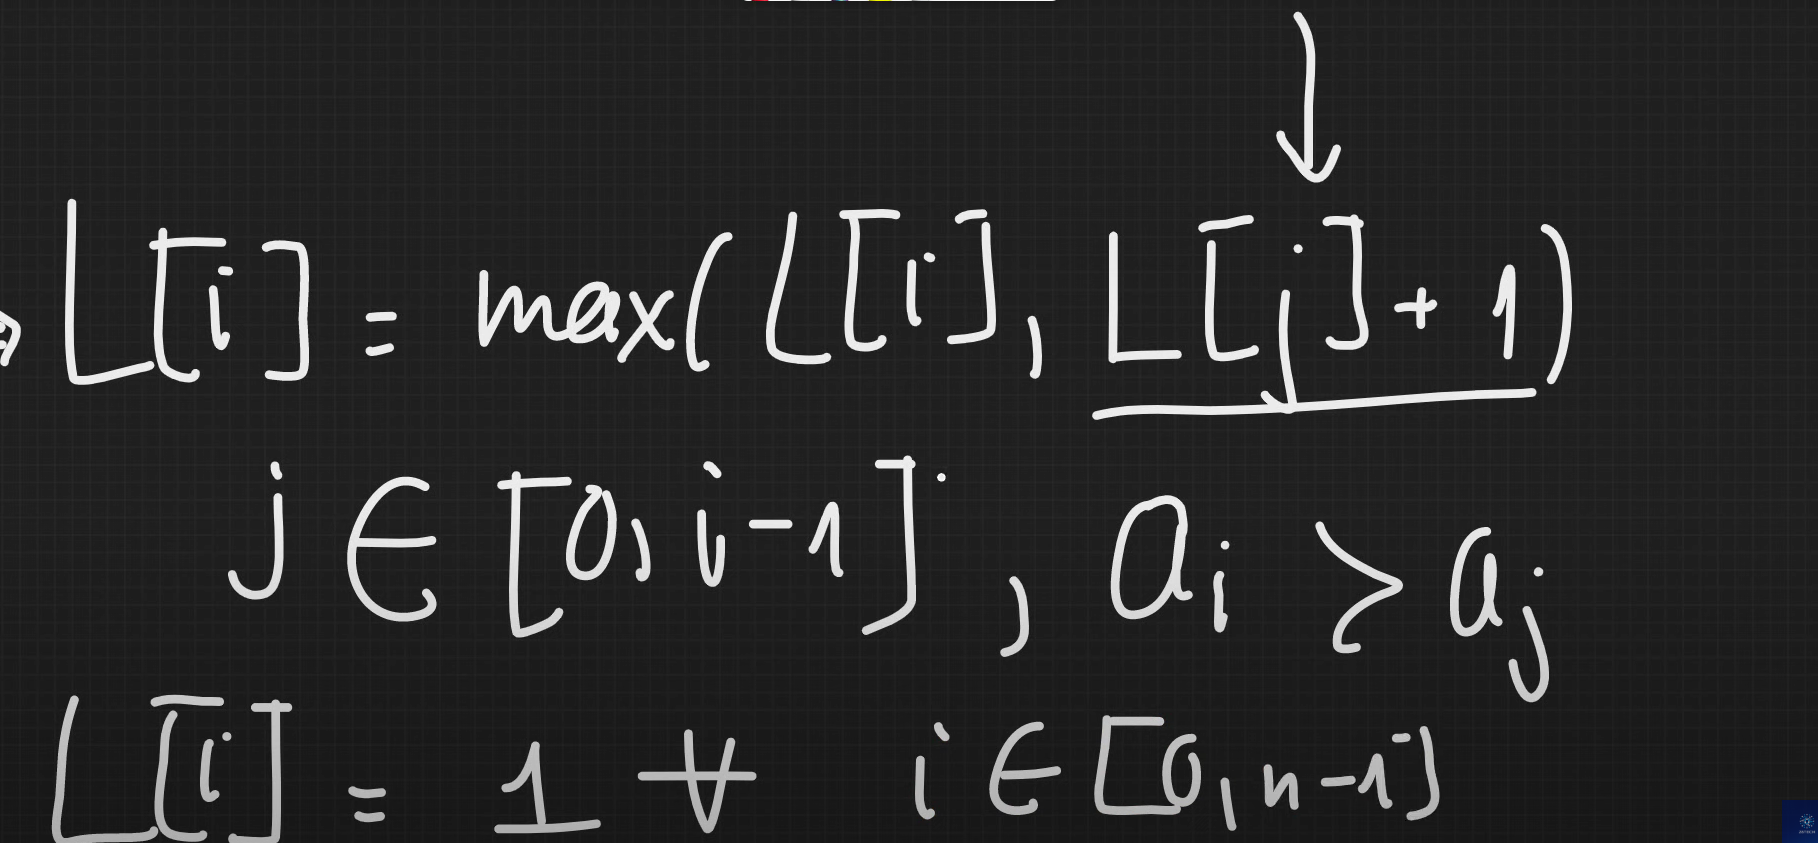 L[i] = max(L[i], L[j] + 1)
j ∈ [0, i-1], ai > aj
L[i] = 1 ∀ i ∈ [0, n-1]